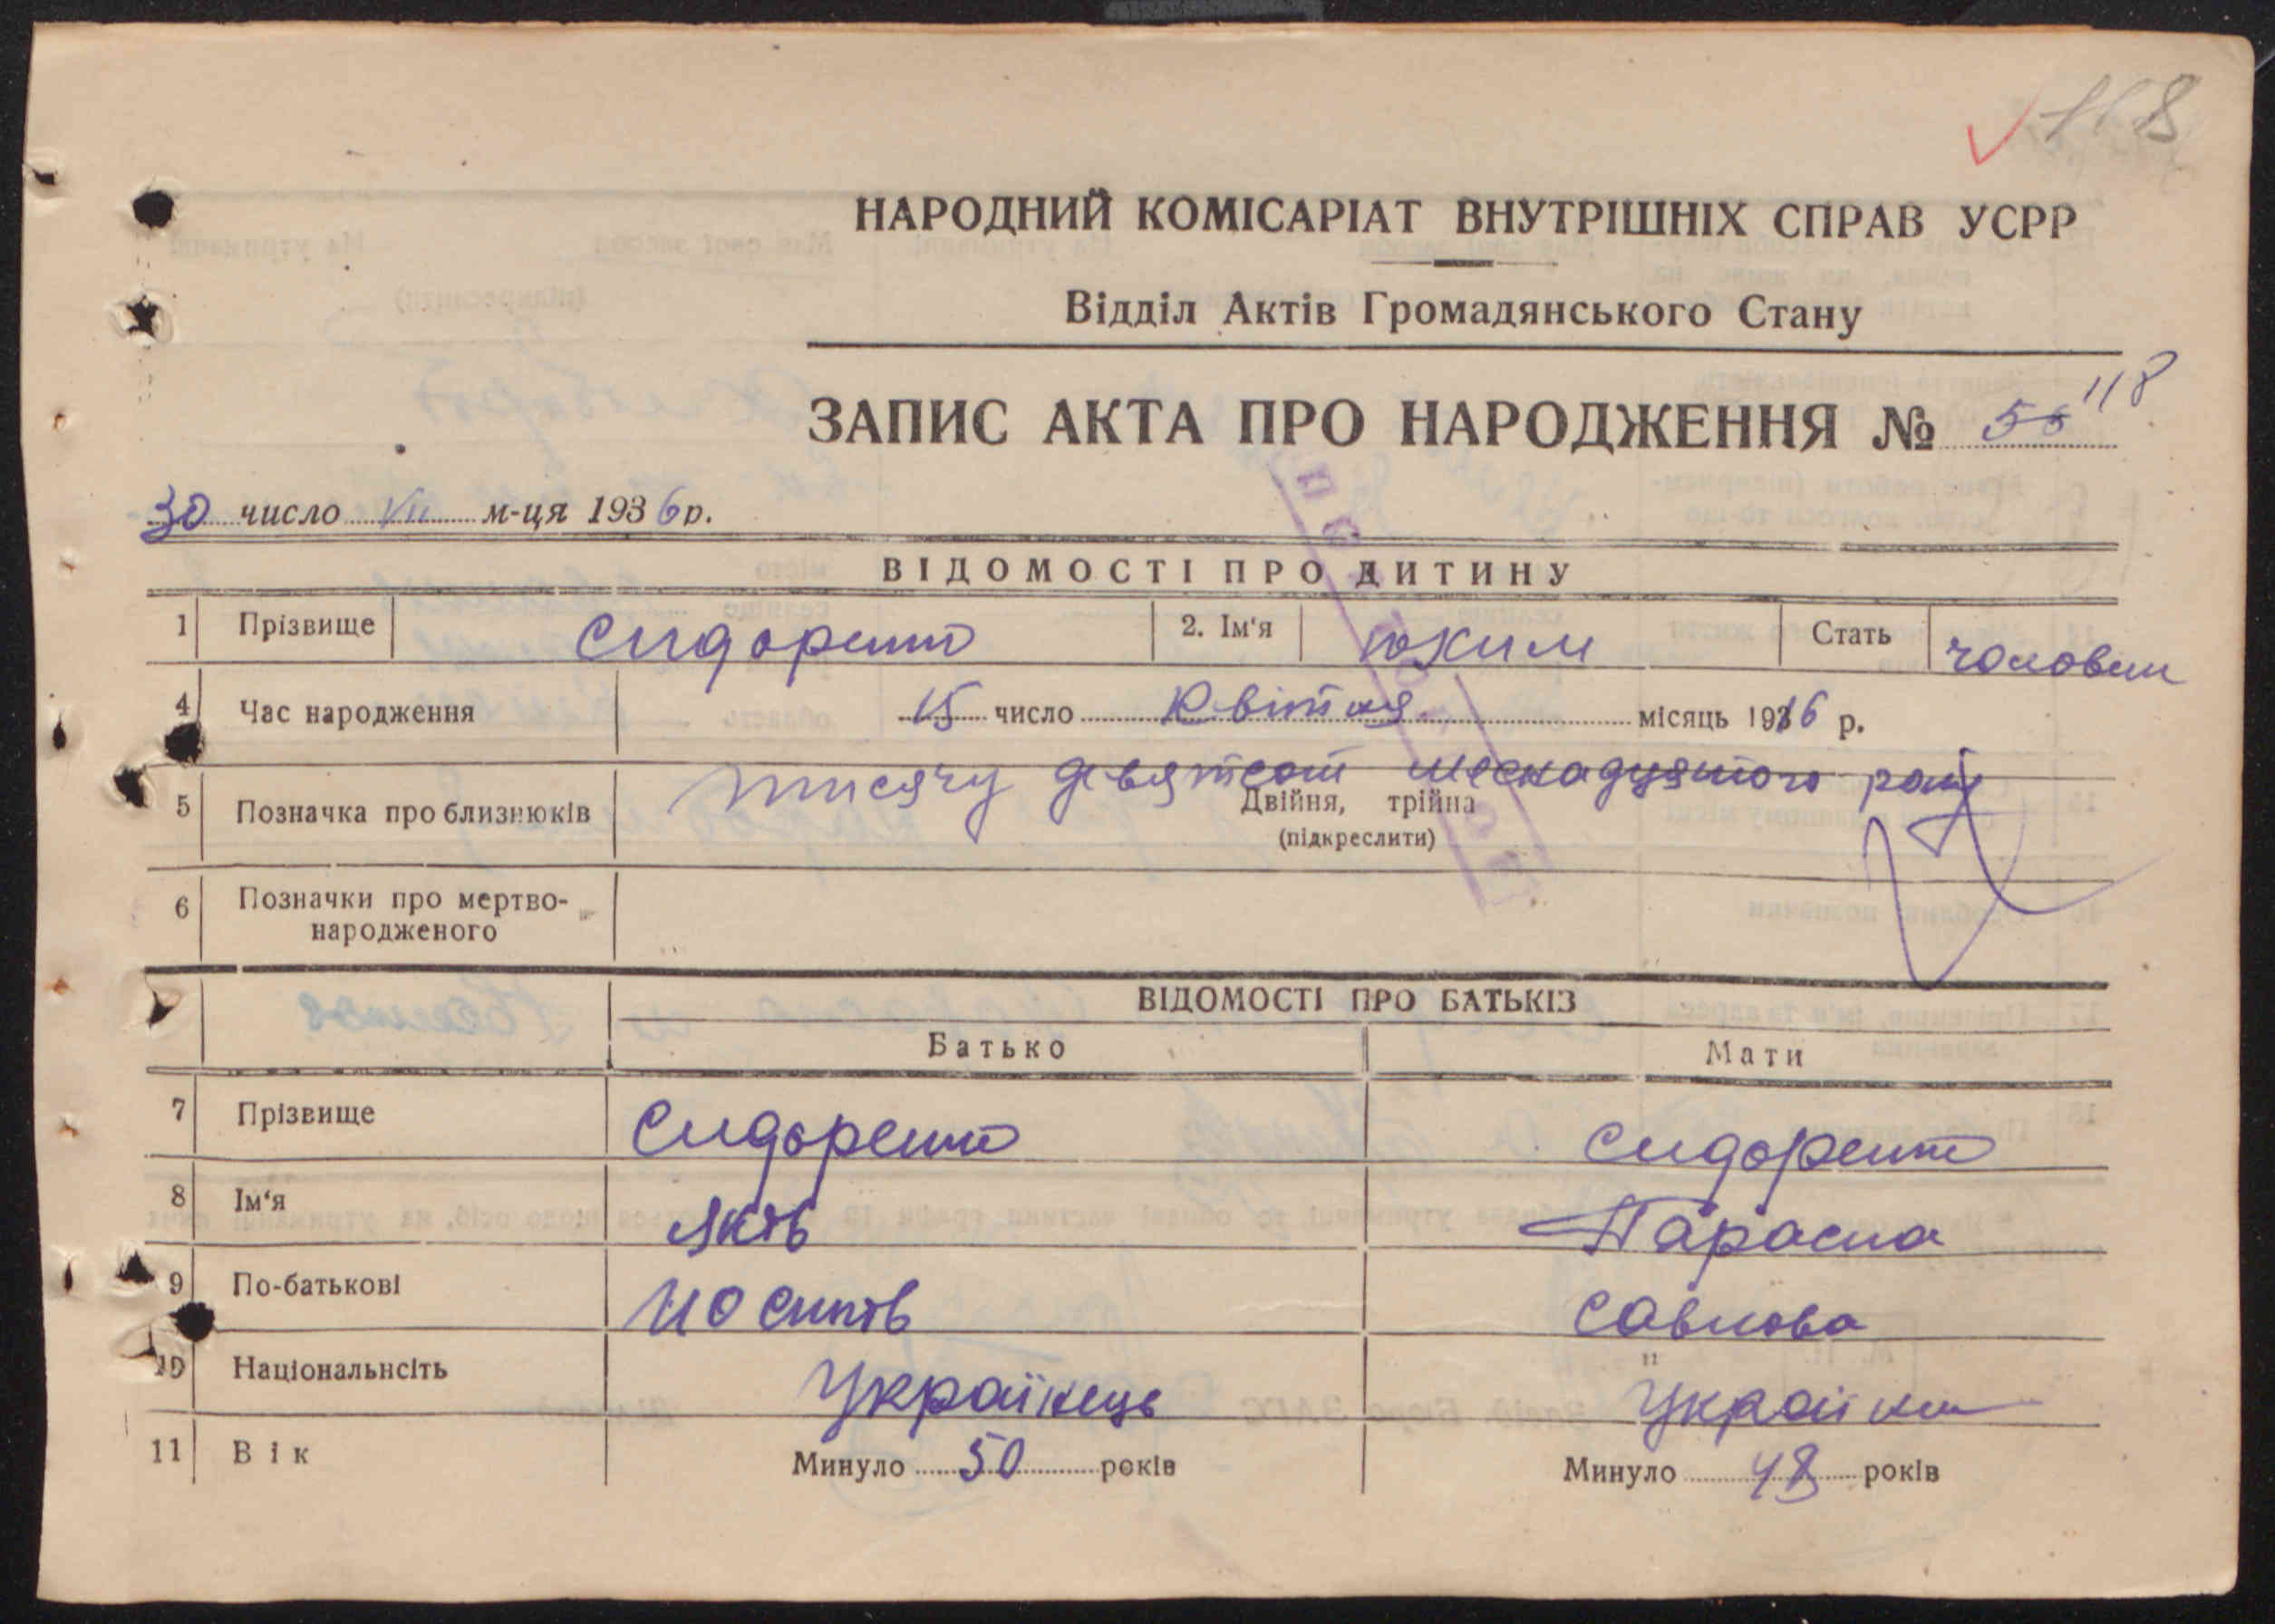 118
НАРОДНИЙ КОМІСАРІАТ ВНУТРІШНІХ СПРАВ УСРР
Відділ Актів Громадянського Стану
ЗАПИС АКТА ПРО НАРОДЖЕННЯ № 56 118
30 число VII м-ця 1936 р.
ВІДОМОСТІ ПРО ДИТИНУ
1 Прізвище Сидоренко 2. Ім'я Юким Стать чоловіч
4 Час народження 15 число Квітня місяць 1916 р.
тисячу девятсот шіснадцятого року
5 Позначка про близнюків Двійня, трійна
(підкреслити)
6 Позначки про мертво-
народженого
ВІДОМОСТІ ПРО БАТЬКІЗ
Батько Мати
7 Прізвище Сидоренко Сидоренко
8 Ім'я Яків Параска
9 По-батькові Йосипів Савкова
10 Національнсіть Українець Українка
11 Вік Минуло 50 років Минуло 48 років